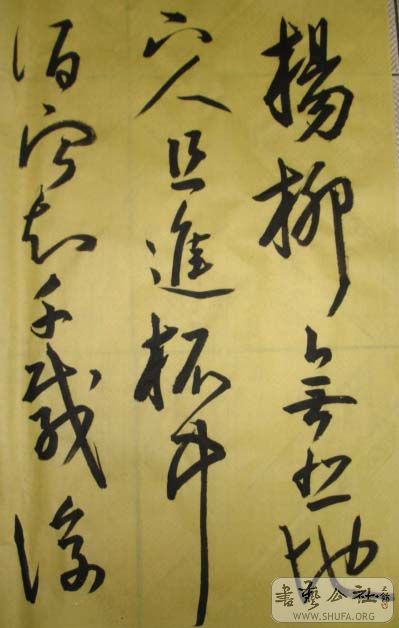 楊柳無地
人且進杯中
酒寧知千載後
書藝公社
WWW.SHUFA.ORG